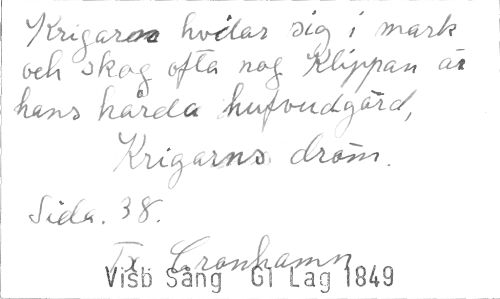 Krigaren hvilar sig i mark
och skog ofta nog Klippan är
hans hårda hufvudgärd,
Krigarns dröm.
Sida. 38.
Tx. Cronhamn
Visb Sång Gl Lag 1849